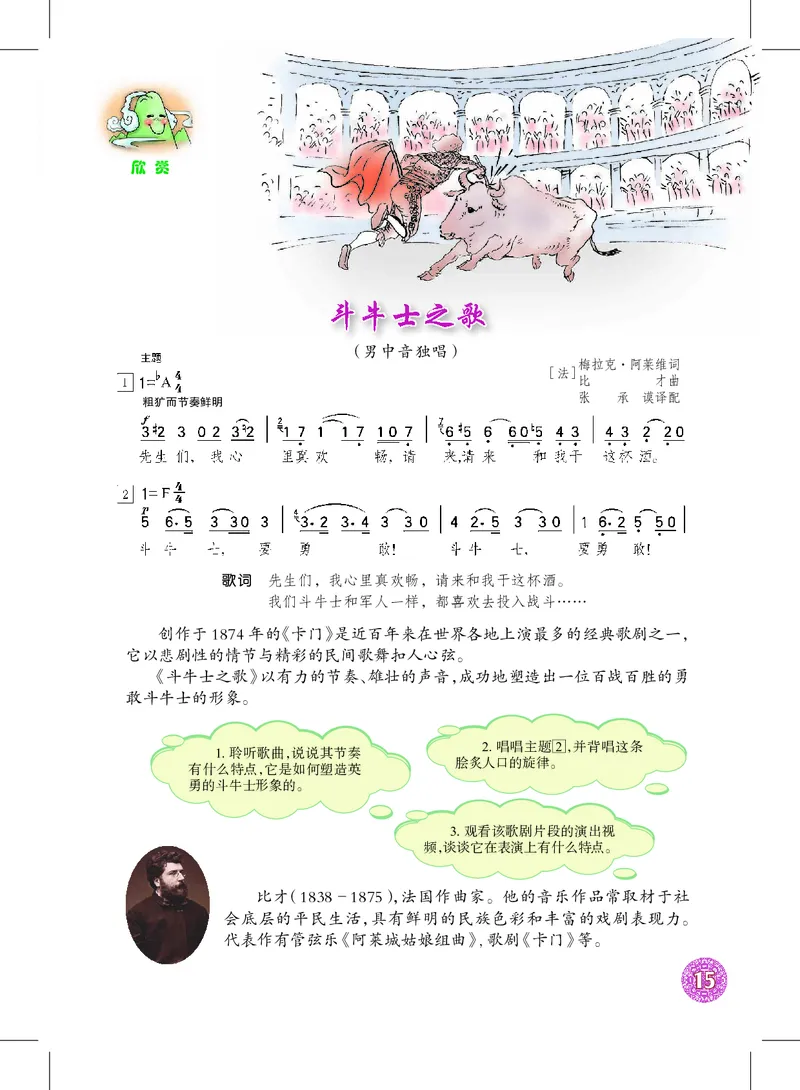 欣赏
斗牛士之歌
（男中音独唱）
主题
1 1=♭A 4/4
粗犷而节奏鲜明
[法]梅拉克·阿莱维词
比才曲
张承谟译配
f
3 ♯2 3 0 2 3 ♮2 | 2 ♮1 7 1 1 7 1 0 7 | 7 6 ♯5 6 6 0 ♮5 4 3 | 4 3 2 2 0
先生们， 我心 里真欢 畅，请 来，请来 和我干 这杯酒。
2 1=F 4/4
p
5 6· 5 3 3 0 3 | 4 3· 2 3· 4 3 3 0 | 4 2· 5 3 3 0 | 1 6· 2 5 5 0 |
斗牛士， 要勇敢！ 斗牛士， 要勇敢！
歌词 先生们，我心里真欢畅，请来和我干这杯酒。
我们斗牛士和军人一样，都喜欢去投入战斗……
创作于1874年的《卡门》是近百年来在世界各地上演最多的经典歌剧之一，
它以悲剧性的情节与精彩的民间歌舞扣人心弦。
《斗牛士之歌》以有力的节奏、雄壮的声音，成功地塑造出一位百战百胜的勇
敢斗牛士的形象。
1. 聆听歌曲，说说其节奏
有什么特点，它是如何塑造英
勇的斗牛士形象的。
2. 唱唱主题2，并背唱这条
脍炙人口的旋律。
3. 观看该歌剧片段的演出视
频，谈谈它在表演上有什么特点。
比才（1838－1875），法国作曲家。他的音乐作品常取材于社
会底层的平民生活，具有鲜明的民族色彩和丰富的戏剧表现力。
代表作有管弦乐《阿莱城姑娘组曲》，歌剧《卡门》等。
15